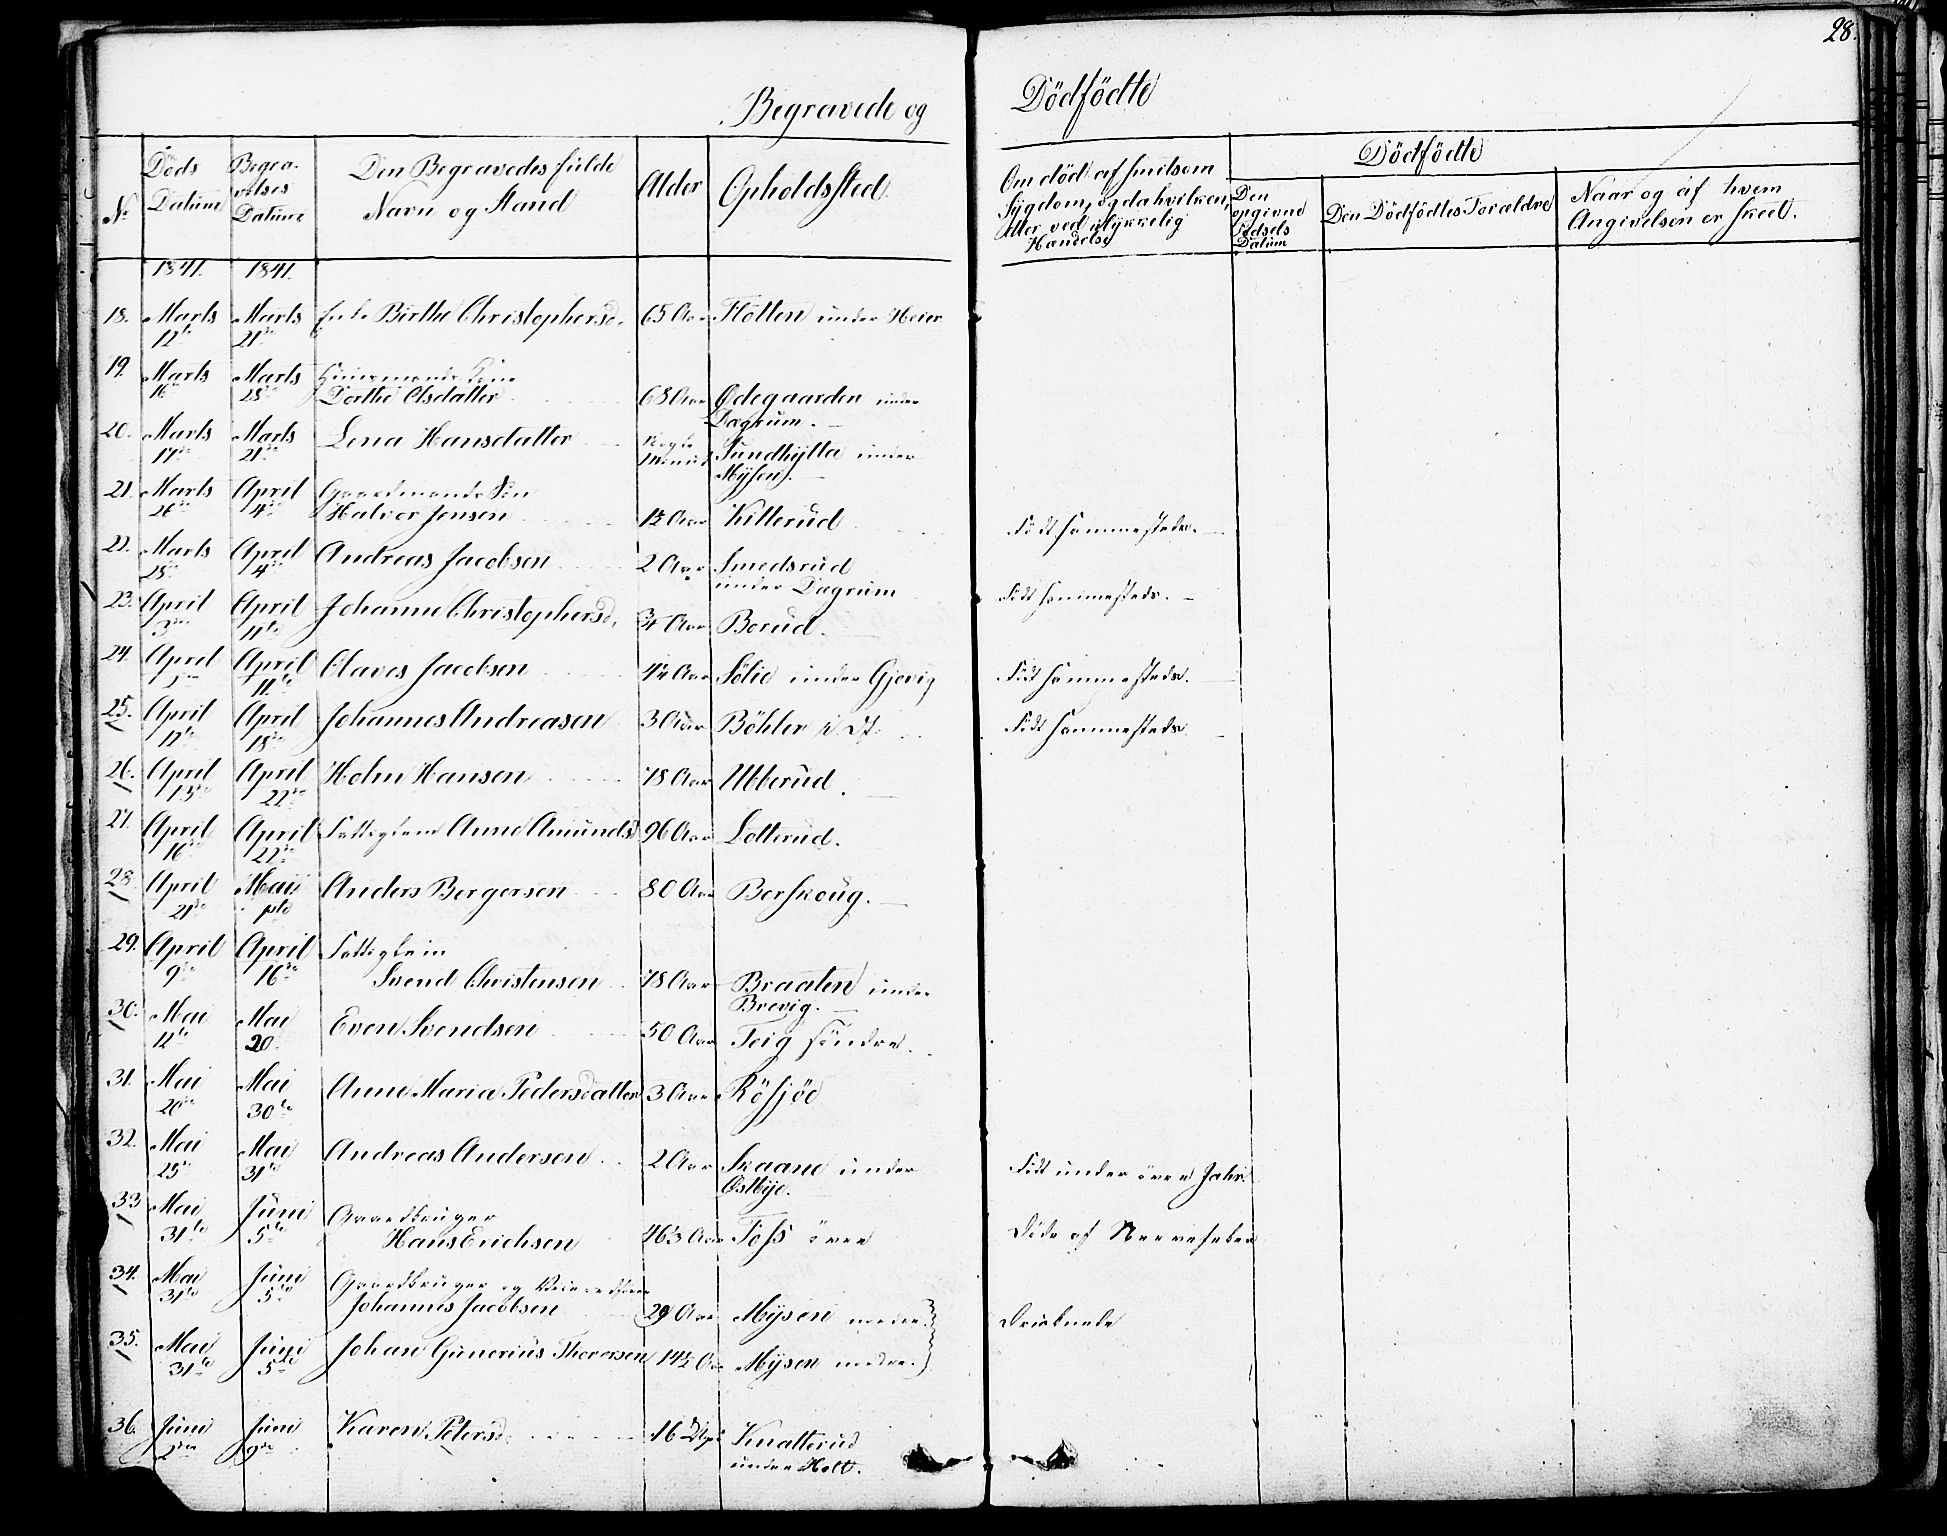 28.
Begravede og Dödfödte
No
Döds Datum
Begravelses Datum
Den Begravedes fulde Navn og Stand
Alder
Opholdssted.
Om död af smitsom Sygdom, og da hvilken, eller ved ulykkelig Handelse
Dödfödte
Den opgivne Födsels Datum
Den Dödfödtes Forældre
Naar og af hvem Angivelsen er skeet.
1841. 1841.
18. Marts 12te Marts 21de Enke Birthe Christophersd. 65 Aar Flotten under Heier
19. Marts 16de Marts 28de Huusmands Kone
Dorthe Olsdatter 68 Aar Ødegaarden under
Dægrum.
20. Marts 17de Marts 21de Lena Hansdatter Nogle Minut Sundhytta under
Mysen.
21. Marts 26de April 4de Gaardmands Sön
Halvor Jensen Aar Kilterud Födt sammesteds.
22. Marts 28de April 4de Andreas Jacobsen 2 Aar Smedsrud
under Dægrum Födt sammesteds.
23. April 3die April 11te Johanne Christophersd. 3/4 Aar Borud.
24. April April 11te Olaves Jacobsen 4½ Aar Sölie under Gjevig Födt sammesteds.
25. April 12te April 18de Johannes Andreasen 3 Aar Böhler Födt sammesteds
26. April 13de April 22de Holm Hansen 78 Aar Ubberud.
27. April 16de April 22de Fattiglem Anne Amundsd 96 Aar Lotterud.
28 April 21de Mai 1ste Anders Bergersen 80 Aar Berskoug.
29. April 9de April 16de Fattiglem
Svend Christensen 78 Aar Braaten under
Brevig.
30. Mai 12te Mai 20 Even Svendsen 50 Aar Teig söndre.
31. Mai 20de Mai 30te Anne Maria Pedersdatter 3 Aar Rösjöe
32. Mai 25de Mai 31te Andreas Andersen 2 Aar Skaane under
Østbye. Födt under övre Jahr.
33 Mai 31te Juni 5te Gaardbruger
Hans Erichsen 46½ Aar Foss övre Döde af Nervefeber
34. Mai 31te Juni 5te Gaardbruger og
Johannes Jacobsen 29 Aar Mysen nedre. Druknede
35. Mai 31te Juni 5te Johan Gunerius Thoresen 14½ Aar Mysen nedre.
36. Juni 2den Juni 9de Karen Petersd. 16 Knatterud
under Holt.